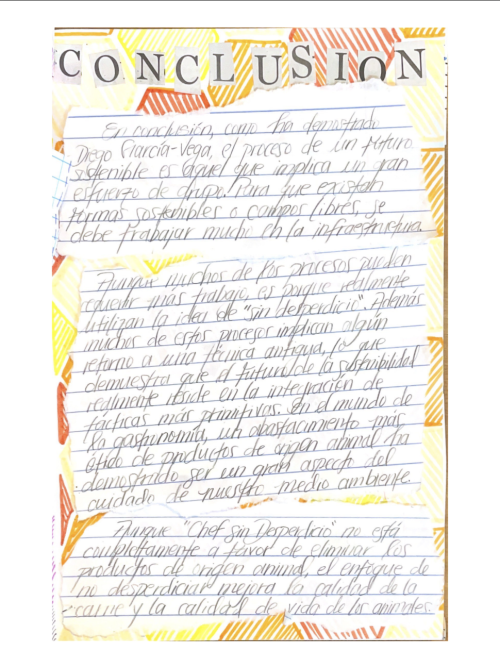 CONCLUSION
En conclusión, como ha demostrado
Diego García-Vega, el proceso de un futuro
sostenible es aquel que implica un gran
esfuerzo de grupo. Para que existan
formas sostenibles o campos libres, se
debe trabajar mucho en la infraestructura.
Aunque muchos de los procesos puedan
requerir más trabajo, es porque realmente
utilizan la idea de "sin desperdicio". Además
muchos de estos procesos implican algún
retorno a una técnica antigua, lo que
demuestra que el futuro de la sostenibilidad
realmente reside en la integración de
tácticas más primitivas. En el mundo de
la gastronomía, un abastecimiento más
ético de productos de origen animal ha
demostrado ser un gran aspecto del
cuidado de nuestro medio ambiente.
Aunque "Chef Sin Desperdicio" no está
completamente a favor de eliminar los
productos de origen animal, el enfoque de
no desperdiciar mejora la calidad de la
carne y la calidad de vida de los animales.